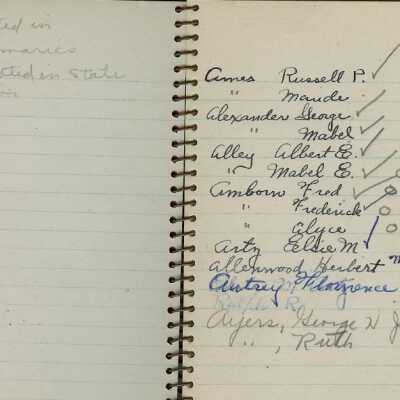 ted in
maries
ted in State
Ames Russell P.
" Maude
Alexander George
" Mabel
Alley Albert E.
" Mabel E.
Amborn Fred
" Frederick
" Alyce
Artz Elsie M
Allenwood Herbert
Autrey M Florence
Ralph R
Ayers, George W J
" , Ruth